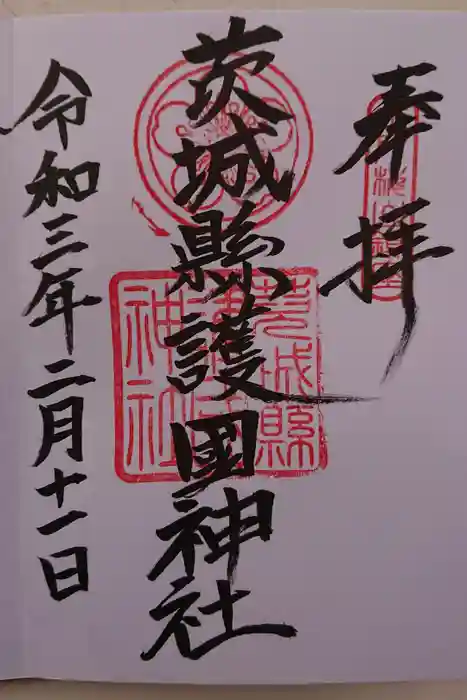 奉拝
茨城縣護國神社
茨城縣護國神社
令和三年二月十一日